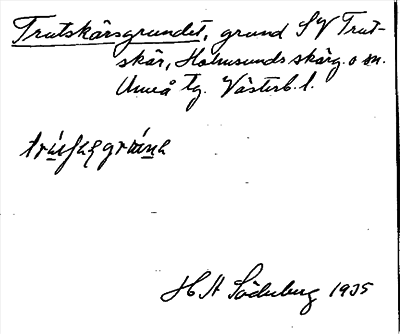 Trutskärsgrundet, grund SV Trut-
skär, Holmsunds skärg. o sn.
Umeå tg. Västerb. l.
H A Söderberg 1935